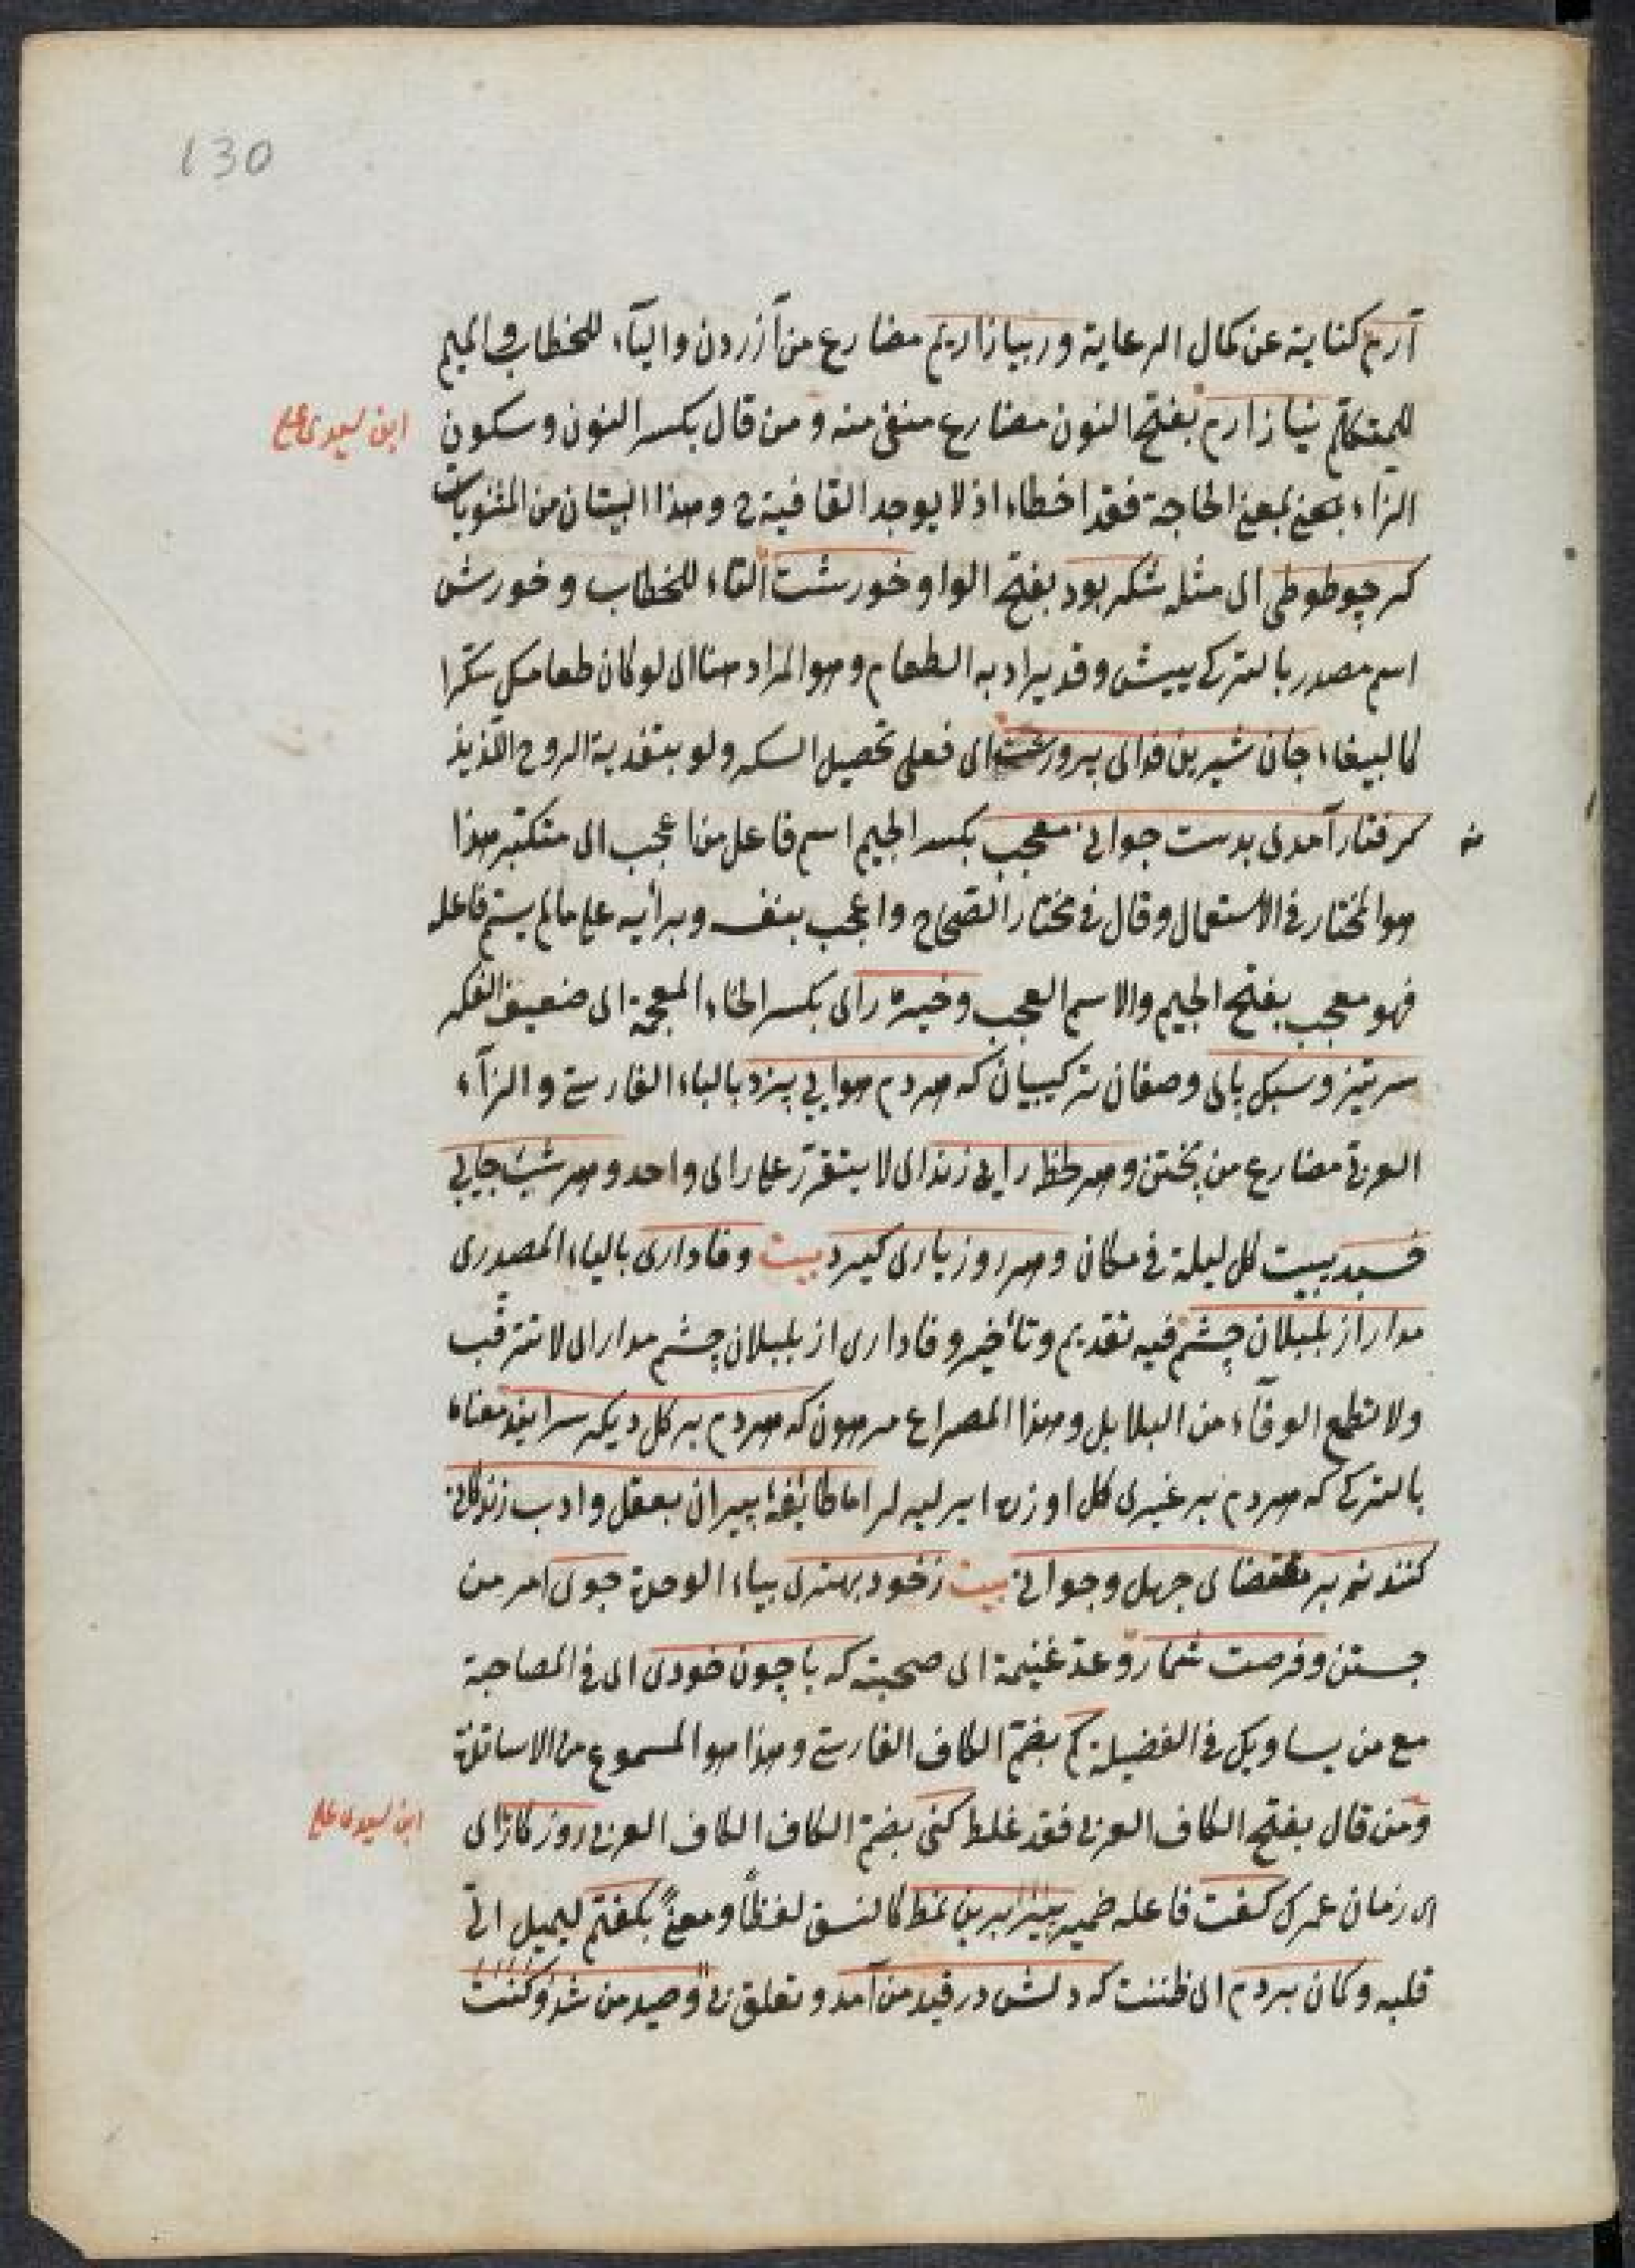 130
آرم كناية عن كمال الرعاية وربيازاريم مضارع من آزردن والياء للخطاب والميم
للمتكلم نيازارم بفتح النون مضارع منفى منه ومن قال بكسر النون وسكون
ابن سيدى على
الزاء بمعنى الحاجة فقد اخطاء اذ لا يوجد القافية ح وهذا البيتان من المثنويات
كر چو طوطى اى مثله شكر بود بفتح الواو خورشت التاء للخطاب وخورش
اسم مصدر بالتركى ييش وقد يراد به الطعام وهو المراد هنا اى لو كان طعامك سكرا
كالببغاء جان شيرين فداى پرورشت اى فعلى تحصيل السكر ولو بتغذية الروح اللذيذ
كرفتار آمدى بدست جوانى معجب بكسر الجيم اسم فاعل من اعجب اى متكبر هذا
هو المختار فى الاستعمال وقال فى مختار الصحاح واعجب بنفسه وبرأيه على ما لم يسم فاعله
فهو معجب بفتح الجيم والاسم العجب وخيره راى بكسر الخاء المعجمة اى ضعيف الفكر
سرتيز وسبك پاى وصفان تركيبيان كه هردم هوايى پزد بالباء الفارسى والزاء
العربى مضارع من پختن وهر لحظه رايى زند اى لا يتقرر على راى واحد وهر شب جايى
خسبد يبيت كل ليلة فى مكان وهر روز يارى كيرد بيت وفادارى بالياء المصدرى
مدار از بلبلان چشم فيه تقديم وتأخير وفادارى از بلبلان چشم مدار اى لا تترقب
ولا تطمع الوفاء من البلابل وهذا المصراع مرهون كه هردم بر كل ديكر سرايند معناه
بالتركى كه هردم بر غيرى كل اوزره ايرليه لر اما طائفهٔ پيران بعقل وادب زندكانى
كنند نه بر مقتضاى جهل وجوانى بيت زخود بهترى بياء الوحدة جوى امر من
جستن وفرصت شمار وعد غنيمة اى صحبته كه با چون خودى اى فى المصاحبة
مع من يساويك فى الفضيلة كم بضم الكاف الفارسى وهذا هو المسموع من الاساتذة
ومن قال بفتح الكاف العربى فقد غلط كنى بضم الكاف الكاف العربى روزكار اى
ابن سيدى على
اى زمان عمرك كفت فاعله ضمير پير برين نمط كالنسق لفظا ومعنى بكفتم ليميل الىّ
قلبه وكمان بردم اى ظننت كه دلش در قيد من آمد وتعلق بى وصيد من شد وكنت